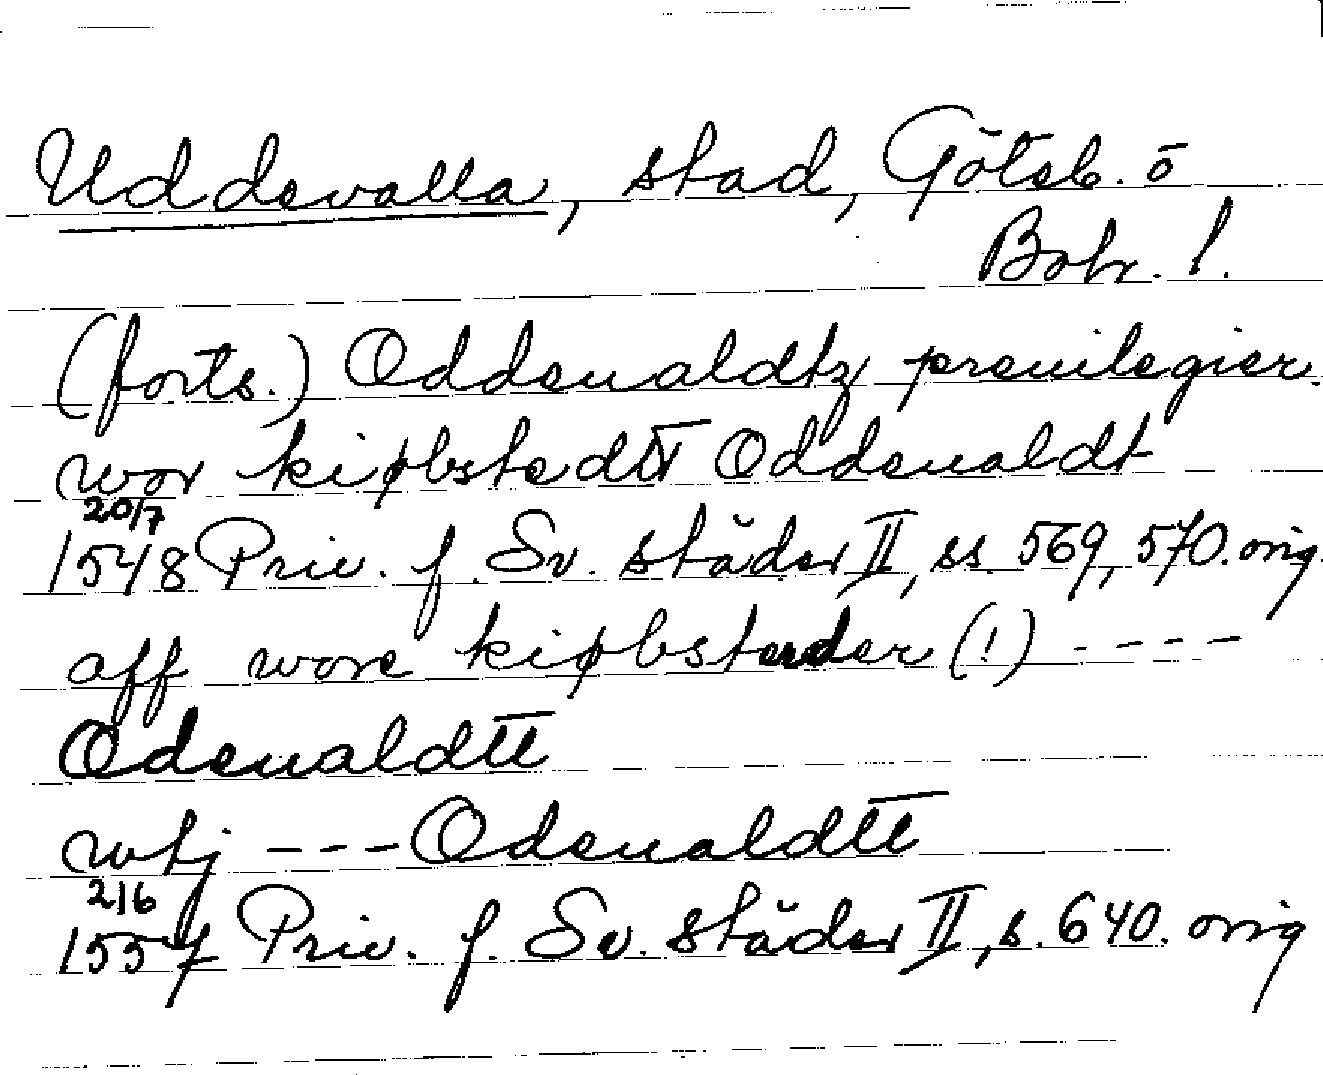 Uddevalla, stad, Götsb. o
Boh. l.
(forts.) Oddeualdtz preuilegier.
wor kiøbstedtt Oddeualdt
20/7
1548 Priv. f. Sv. städer II, ss. 569, 570. orig.
aff wore kiøbsteder (!) ----
Odeualdtt
wtj --- Odeualdtt
2/6
1557 Priv. f. Sv. städer II, s. 640. orig